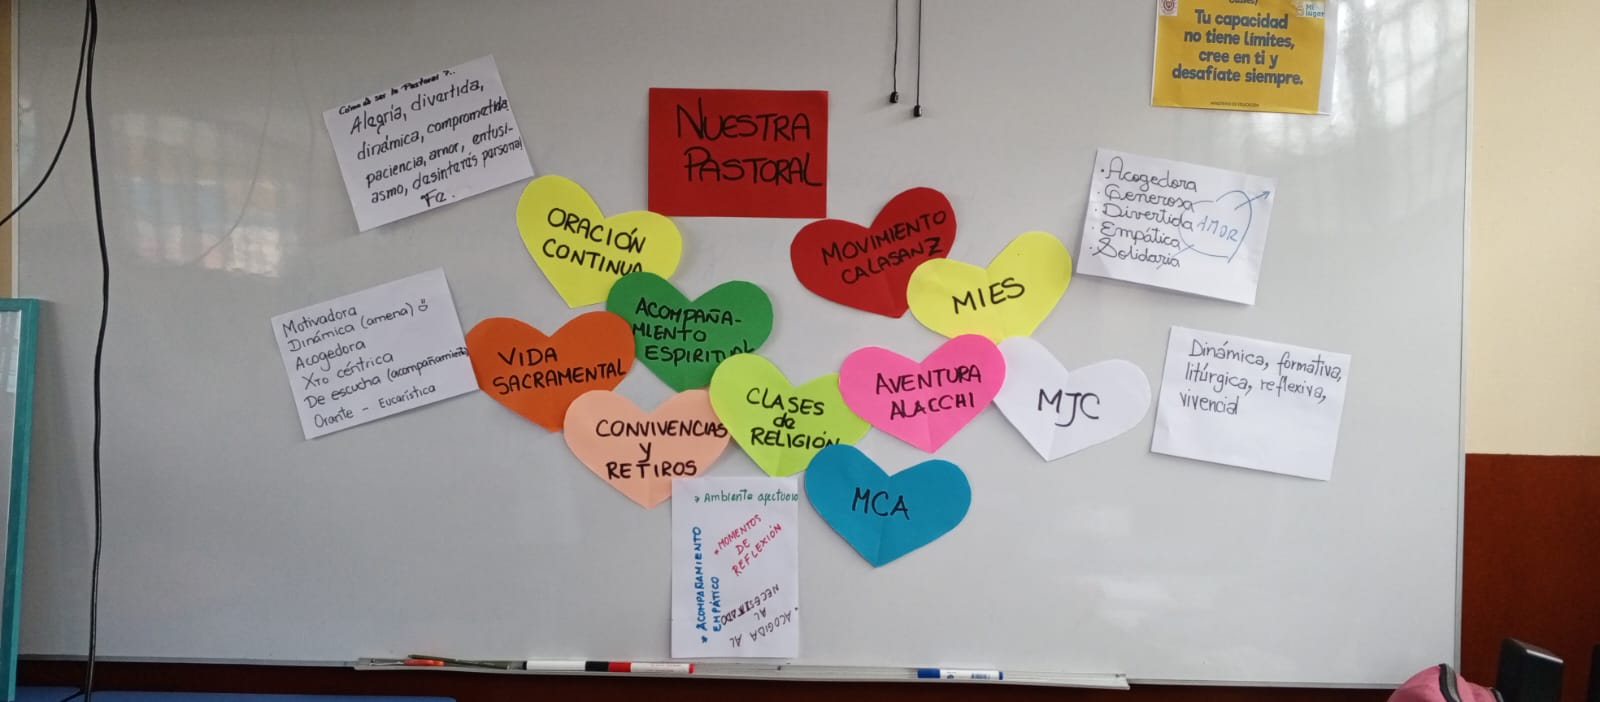 Tu capacidad
no tiene límites,
cree en ti y
desafíate siempre.
MINISTERIO DE EDUCACIÓN
Mi
lugar
NUESTRA
PASTORAL
Alegría, divertida,
dinámica, comprometida
paciencia, amor, entusi-
asmo, desinterés personal
Fe.
Motivadora
Dinámica (amena)
Acogedora
Xto céntrica
De escucha (acompañamiento)
Orante - Eucarística
ORACIÓN
CONTINUA
ACOMPAÑA-
MIENTO
ESPIRITUAL
VIDA
SACRAMENTAL
CONVIVENCIAS
Y
RETIROS
CLASES
de
RELIGIÓN
MOVIMIENTO
CALASANZ
MIES
AVENTURA
ALACCHI
MJC
MCA
· Acogedora
· Generosa
· Divertida
· Empática
· Solidaria
AMOR
Dinámica, formativa,
litúrgica, reflexiva,
vivencial
* Ambiente afectuoso
* MOMENTOS
DE
REFLEXIÓN
* ACOMPAÑAMIENTO
EMPÁTICO
· ACOGIDA AL
AL
NECESITADO